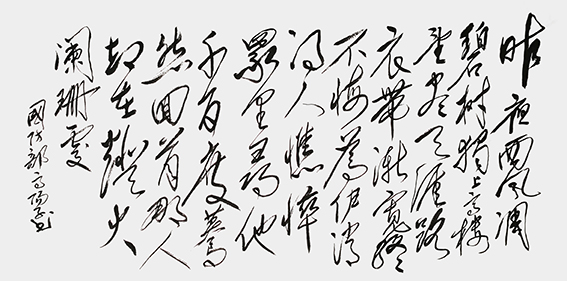 昨夜西風凋
碧樹獨上高樓
望尽天涯路
衣帶漸寬終
不悔為伊消
得人憔悴
眾里尋他
千百度驀
然回首那人
却在燈火
闌珊處
國防部高